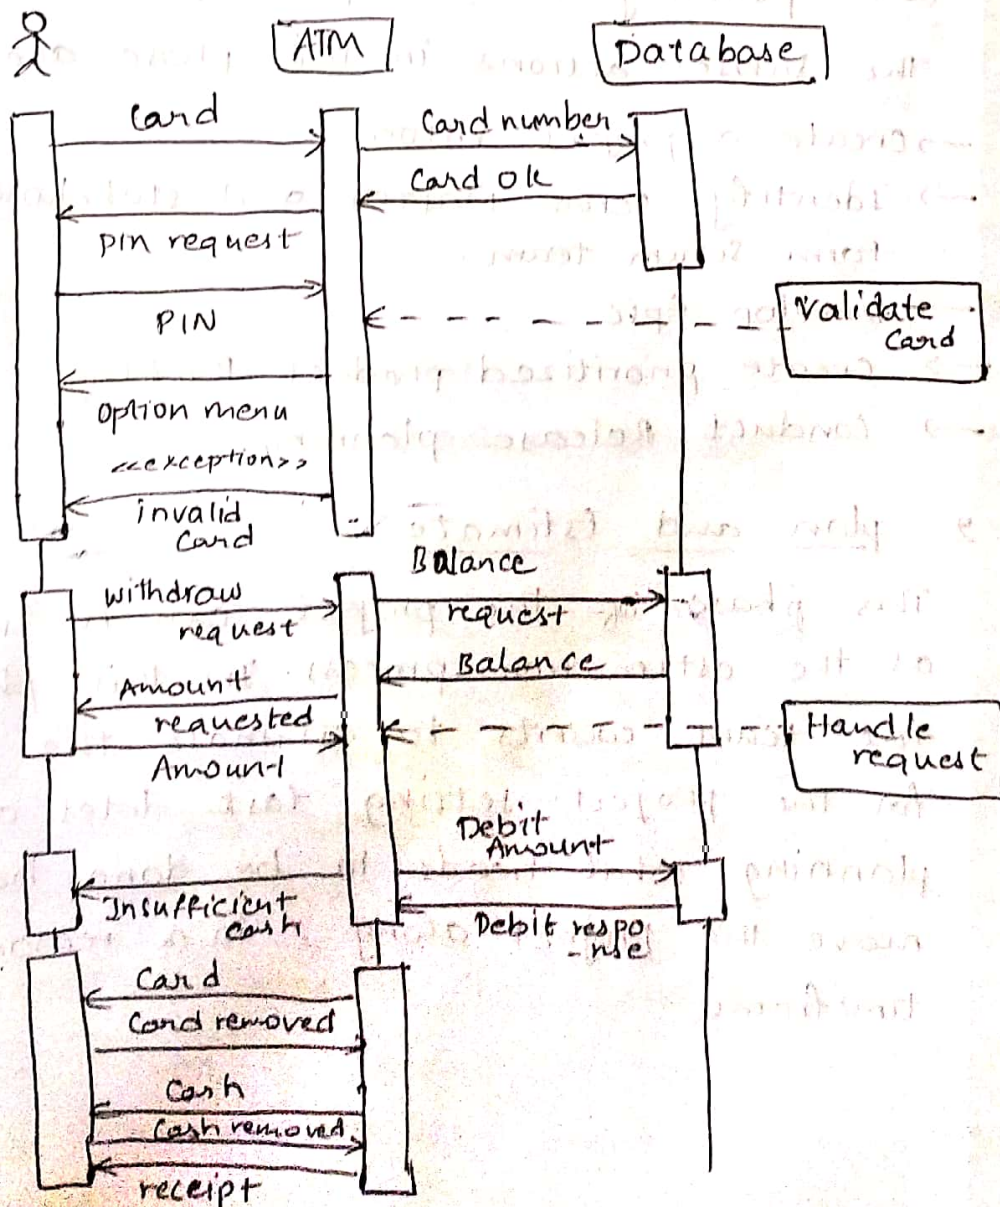 ATM
Database
Card
Card number
Card ok
PIN request
PIN
Validate
Card
option menu
<<exception>>
invalid
Card
Balance
withdraw
request
request
Balance
Amount
requested
Handle
request
Amount
Debit
Amount
Insufficient
cash
Debit respo
-nse
Card
Card removed
Cash
Cash removed
receipt